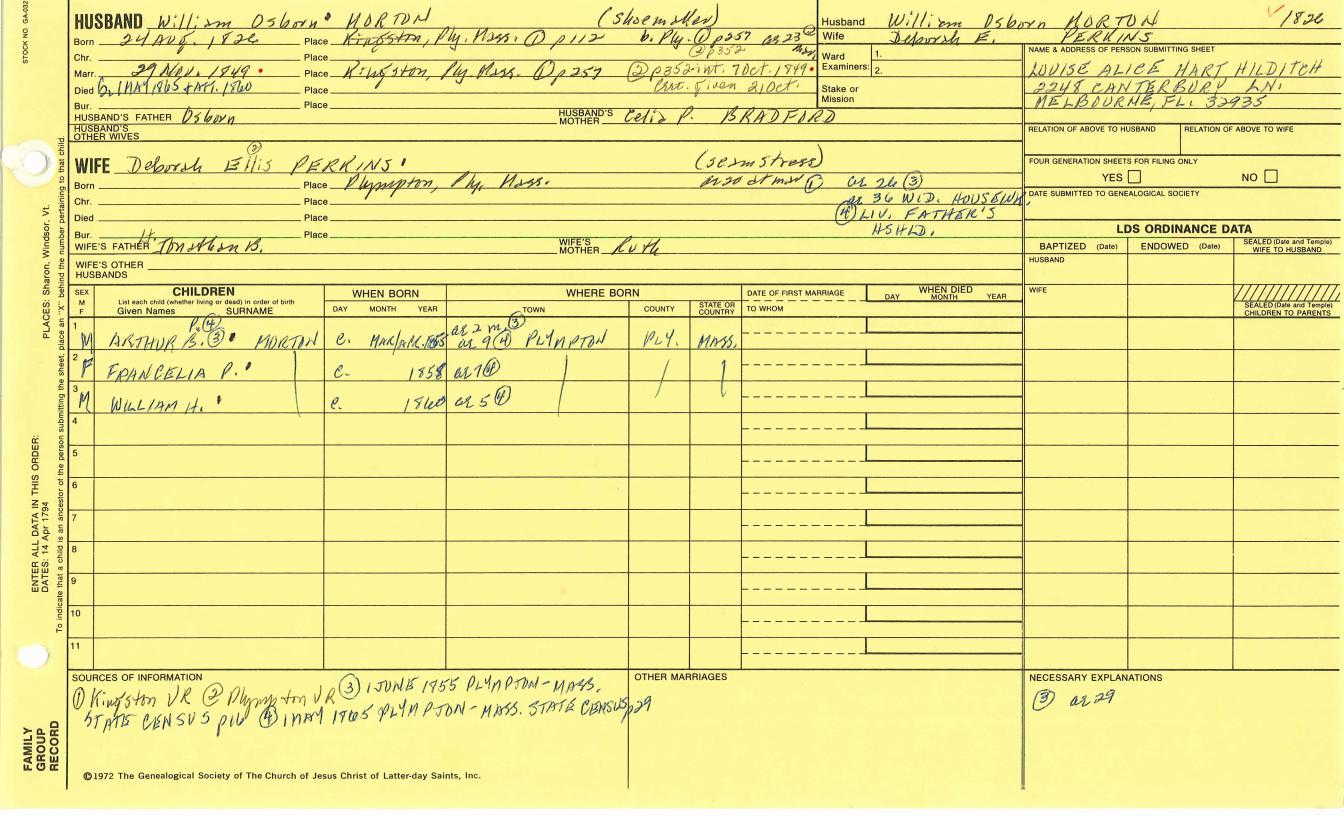 STOCK NO. GA-032
HUSBAND William Osborn MORTON (shoemaker)
Born 24 Aug. 1826 Place Kingston, Ply. Mass. ① p112 b. Ply. ① p257 ae 23 ②
② p352
Chr. Place
Marr. 29 Nov. 1849 Place Kingston, Ply. Mass. ① p257 ② p352 int. 7 Oct. 1849
Died b. 1 MAY 1865 + AFT. 1860 Place Cert. given 21 Oct.
Bur. Place
HUSBAND'S FATHER Osborn HUSBAND'S MOTHER Celia P. BRADFORD
HUSBAND'S OTHER WIVES
Husband William Osborn MORTON 1826
Wife Deborah E. PERKINS
Ward Examiners: 1. 2.
Stake or Mission
NAME & ADDRESS OF PERSON SUBMITTING SHEET
LOUISE ALICE HART HILDITCH
2248 CANTERBURY LN.
MELBOURNE, FL. 32935
RELATION OF ABOVE TO HUSBAND RELATION OF ABOVE TO WIFE
FOUR GENERATION SHEETS FOR FILING ONLY
YES NO
DATE SUBMITTED TO GENEALOGICAL SOCIETY
②
WIFE Deborah Ellis PERKINS (seamstress)
Born Place Plympton, Ply. Mass. ae 20 at mar ① ae 26 ③
Chr. Place ae 36 WID. HOUSEWK,
Died Place ④ LIV. FATHER'S
Bur. Place HSHLD.
WIFE'S FATHER H. Jonathan B. WIFE'S MOTHER Ruth
WIFE'S OTHER HUSBANDS
LDS ORDINANCE DATA
BAPTIZED (Date) ENDOWED (Date) SEALED (Date and Temple) WIFE TO HUSBAND
HUSBAND
WIFE
SEALED (Date and Temple) CHILDREN TO PARENTS
SEX M F CHILDREN WHEN BORN WHERE BORN DATE OF FIRST MARRIAGE WHEN DIED
List each child (whether living or dead) in order of birth
Given Names SURNAME DAY MONTH YEAR TOWN COUNTY STATE OR COUNTRY TO WHOM DAY MONTH YEAR
P. ④ ae 2 m. ③
1 M ARTHUR B. ③ MORTON c. MAR/APR. 1855 ae 9 ④ PLYMPTON PLY. MASS.
2 F FRANCELIA P. c. 1858 ae 7 ④
3 M WILLIAM H. c. 1860 ae 5 ④
4
5
6
7
8
9
10
11
SOURCES OF INFORMATION
① Kingston VR ② Plympton VR ③ 1 JUNE 1855 PLYMPTON-MASS.
STATE CENSUS p16 ④ 1 MAY 1865 PLYMPTON-MASS. STATE CENSUS p29
OTHER MARRIAGES
NECESSARY EXPLANATIONS
③ ae 29
©1972 The Genealogical Society of The Church of Jesus Christ of Latter-day Saints, Inc.
FAMILY GROUP RECORD
ENTER ALL DATA IN THIS ORDER:
DATES: 14 Apr 1794
PLACES: Sharon, Windsor, Vt.
To indicate that a child is an ancestor of the person submitting the sheet, place an "X" behind the number pertaining to that child.